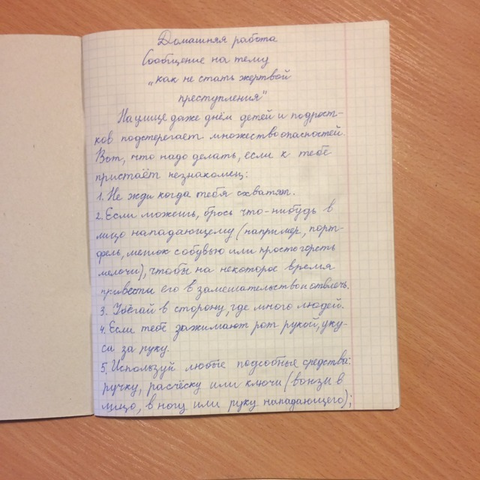 Домашняя работа
Сообщение на тему
„как не стать жертвой
преступления“
На улице даже днём детей и подрост-
ков подстерегает множество опасностей.
Вот, что надо делать, если к тебе
пристаёт незнакомец:
1. Не жди когда тебя схватят.
2. Если можешь, брось что-нибудь в
лицо нападающему (например, порт-
фель, мешок с обувью или просто горсть
мелочи), чтобы на некоторое время
привести его в замешательство и отвлечь.
3. Убегай в сторону, где много людей.
4. Если тебе зажимают рот рукой, уку-
си за руку.
5. Используй любые подсобные средства:
ручку, расчёску или ключи (вонзи в
лицо, в ногу или руку нападающего);